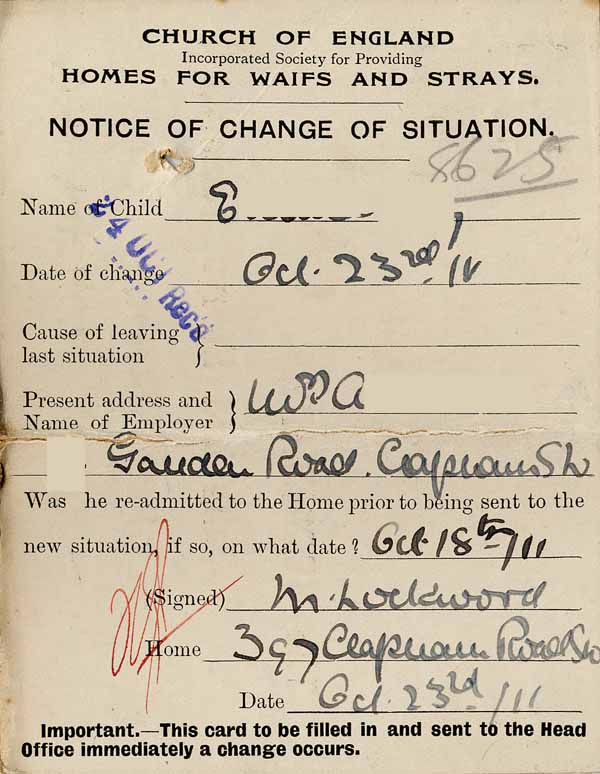 CHURCH OF ENGLAND
Incorporated Society for Providing
HOMES FOR WAIFS AND STRAYS.
NOTICE OF CHANGE OF SITUATION.
8625
Name of Child E
24 OCT Rec'd
Date of change Oct. 23rd/11
Cause of leaving
last situation
Present address and
Name of Employer
Gauden Road. Clapham SW
Was he re-admitted to the Home prior to being sent to the
new situation, if so, on what date? Oct 18th/11
(Signed) M. Lockwood
Home 397 Clapham Road SW
Date Oct. 23rd/11
Important.—This card to be filled in and sent to the Head
Office immediately a change occurs.